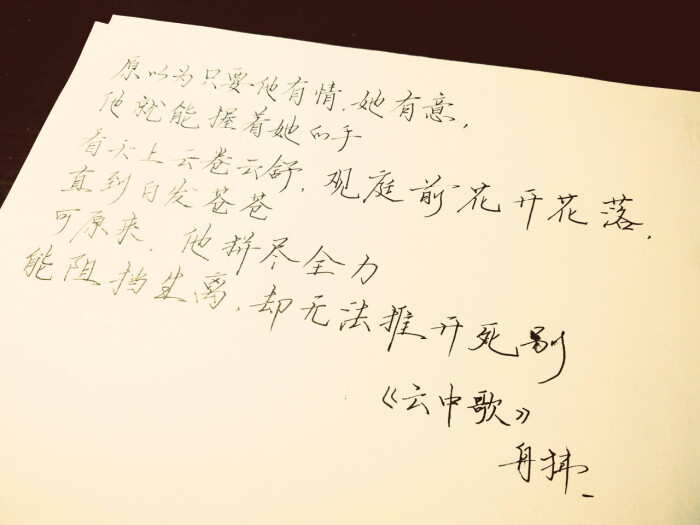 原以为只要他有情,她有意,
他就能握着她的手
看天上云卷云舒,观庭前花开花落,
直到白发苍苍
可原来,他拼尽全力
能阻挡生离,却无法推开死别
《云中歌》